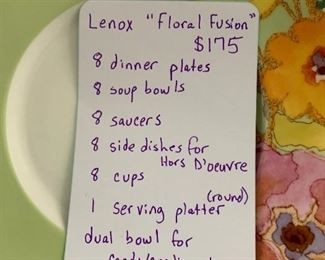 Lenox "Floral Fusion"
$175
8 dinner plates
8 soup bowls
8 saucers
8 side dishes for
Hors D'oeuvre
8 cups
(round)
1 serving platter
dual bowl for